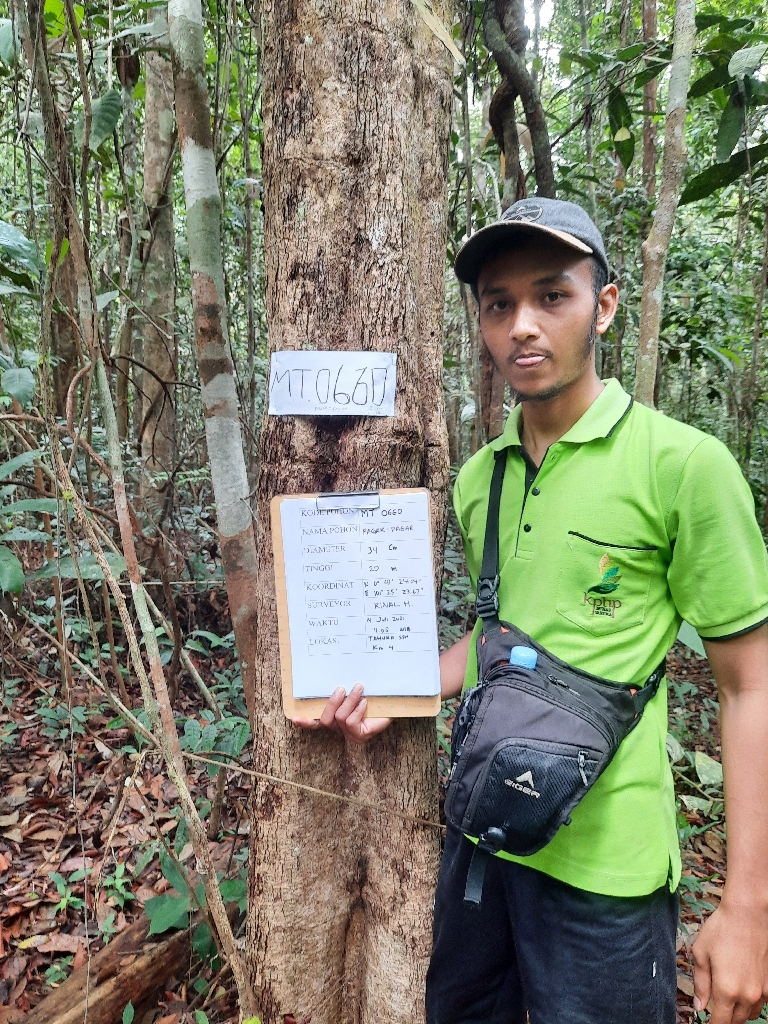 MT.0660
KODE POHON MT 0660
NAMA POHON PAGAR-PAGAR
DIAMETER 34 Cm
TINGGI 20 m
KOORDINAT
SURVEYOR RINAL H.
WAKTU Juli 2021
WIB
LOKASI TAHURA SSH
Km 4
kphp
EIGER